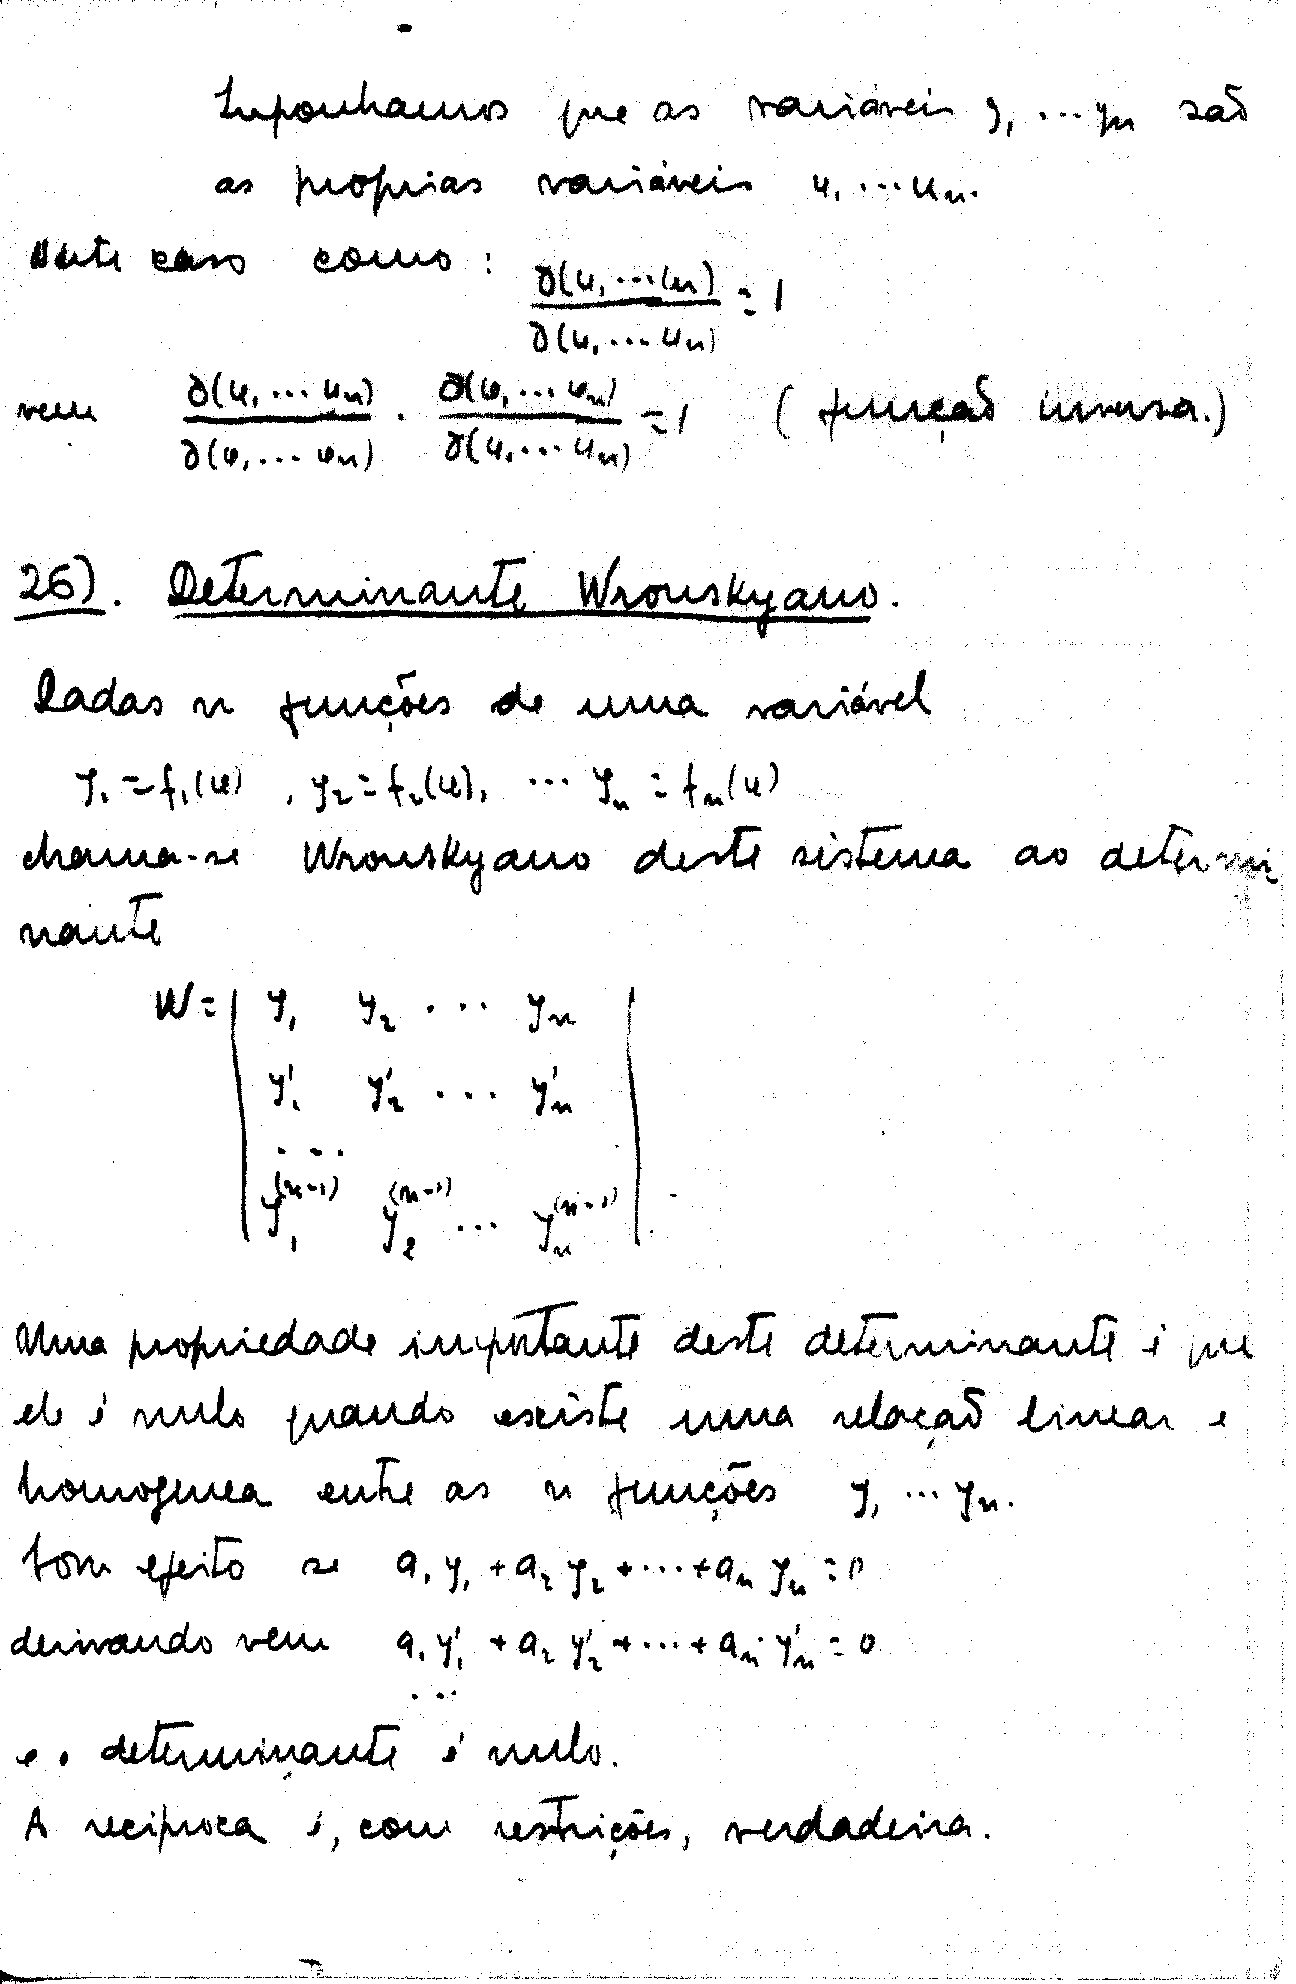 Suponhamos que as variáveis y₁ ... yₙ são
as proprias variáveis u₁ ... uₙ.
Neste caso como : ∂(u₁ ... uₙ) / ∂(u₁ ... uₙ) = 1
vem ∂(u₁ ... uₙ) / ∂(φ₁ ... φₙ) . ∂(φ₁ ... φₙ) / ∂(u₁ ... uₙ) = 1 ( função inversa.)
26). Determinante Wronskyano.
Dadas n funções de uma variável
y₁ = f₁(u) , y₂ = f₂(u), ... yₙ = fₙ(u)
chama-se Wronskyano deste sistema ao determi
nante
W = | y₁ y₂ ... yₙ |
y'₁ y'₂ ... y'ₙ
...
y₁⁽ⁿ⁻¹⁾ y₂⁽ⁿ⁻¹⁾ ... yₙ⁽ⁿ⁻¹⁾
Uma propriedade importante deste determinante é que
ele é nulo quando existe uma relação linear e
homogenea entre as n funções y₁ ... yₙ.
Com efeito se a₁ y₁ + a₂ y₂ + ... + aₙ yₙ = 0
derivando vem a₁ y'₁ + a₂ y'₂ + ... + aₙ y'ₙ = 0
...
e o determinante é nulo.
A reciproca é, com restrições, verdadeira.